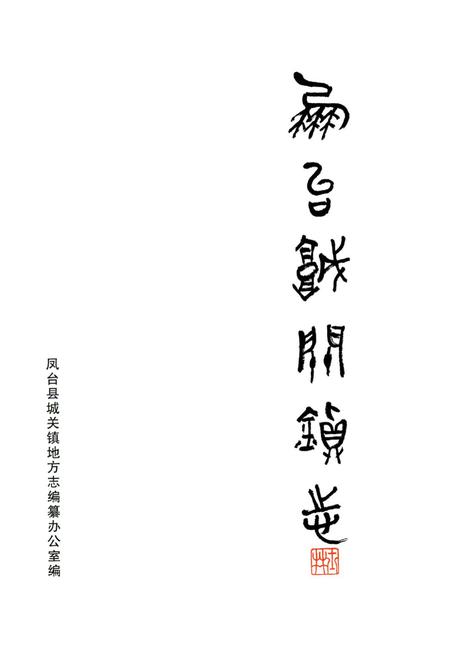 凤台城关镇志
凤台县城关镇地方志编纂办公室编